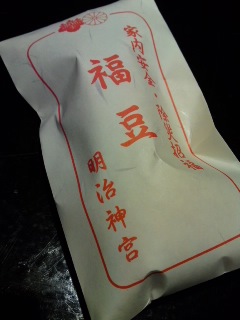 家内安全・除災招福
福豆
明治神宮